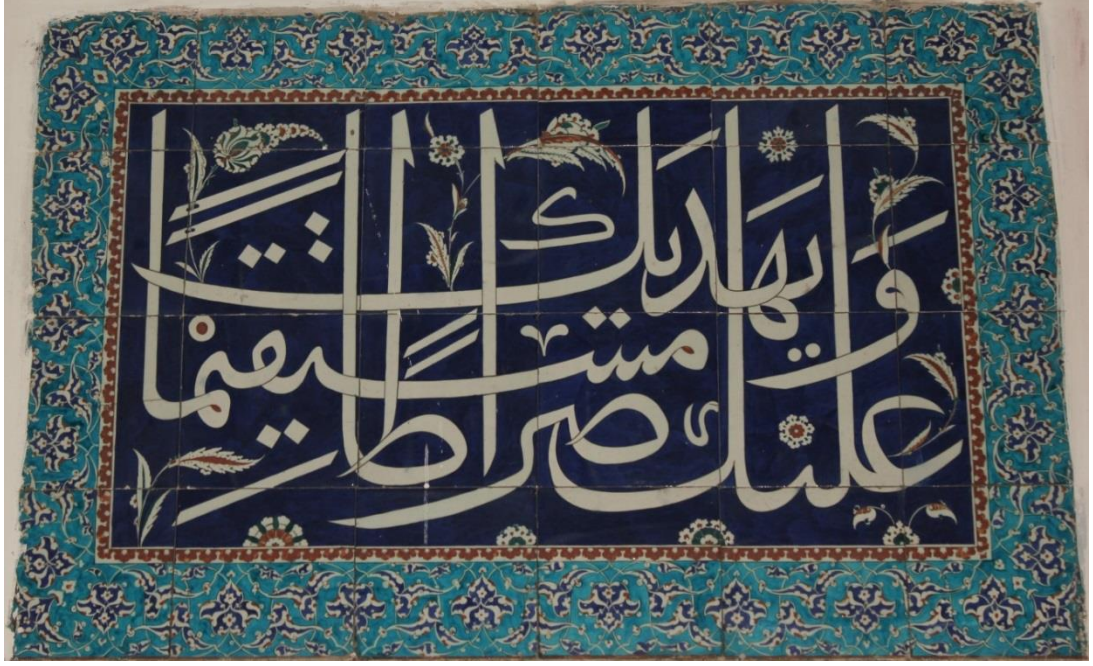 عليك ويهديك صراطا مستقيما